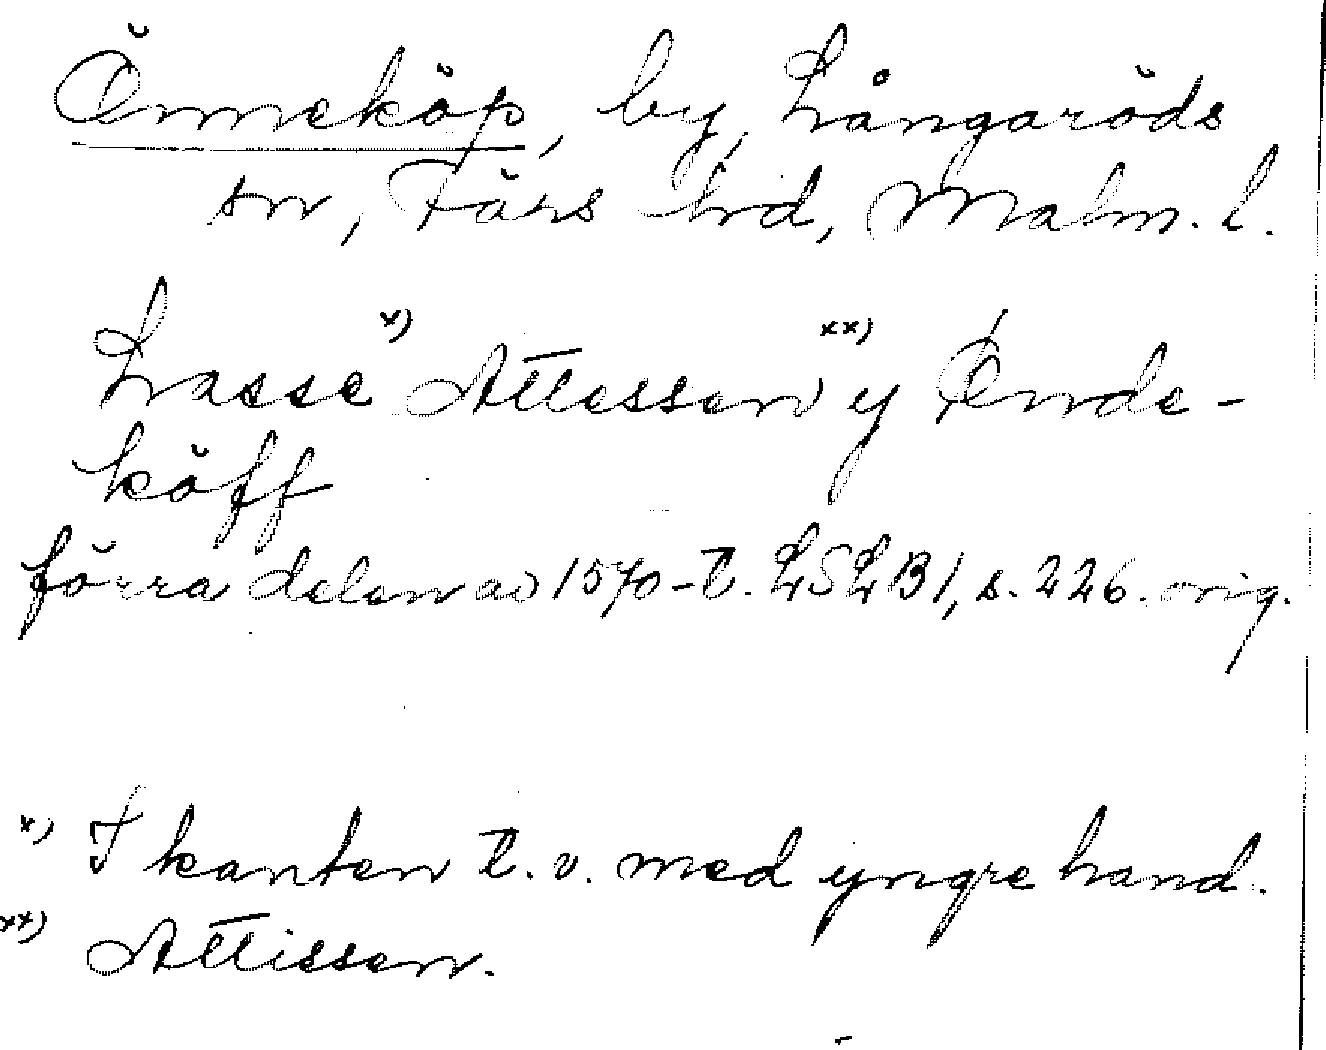 Önneköp, by, Långaröds
sn, Färs hd, Malm. l.
Lasse x) Attessen xx) y Ønde-
köff
förra delen av 1570-t. LSLB1, s. 226. orig.
x) I kanten t. v. med yngre hand.
xx) Attissen.